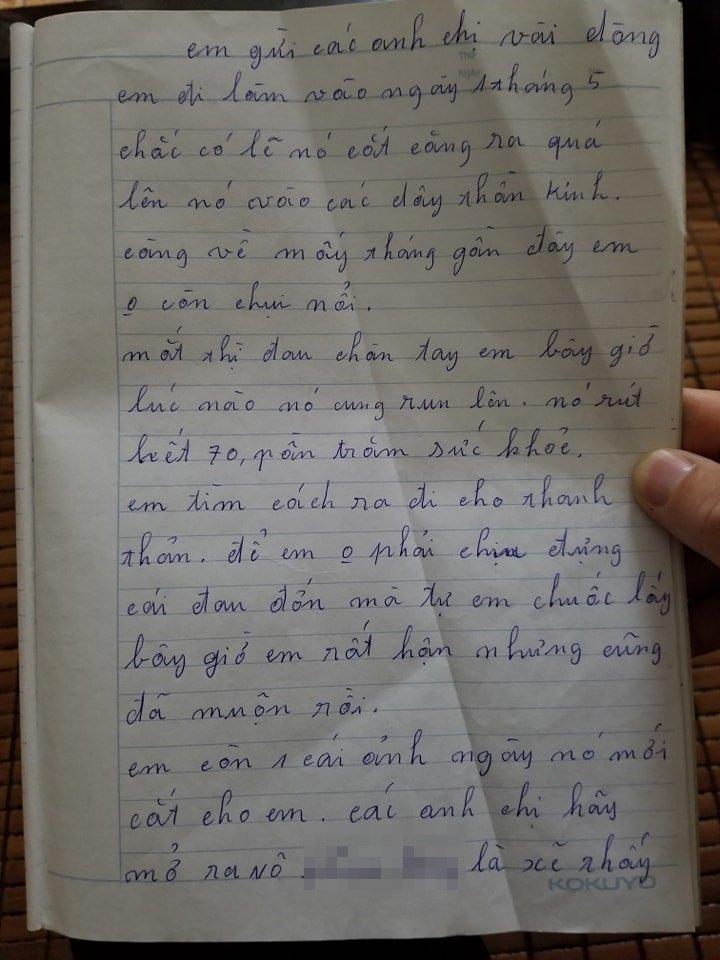 em gửi các anh chị vài dòng
em đi làm vào ngày 1 tháng 5
chắc có lẽ nó cắt căng ra quá
lên nó vào các dây thần kinh.
càng về mấy tháng gần đây em
o còn chịu nổi.
mắt thị đau chân tay em bây giờ
lúc nào nó cung run lên. nó rút
hết 70, phần trăm sức khoẻ.
em tìm cách ra đi cho thanh
thản. để em o phải chịu đựng
cái đau đớn mà tự em chuốc lấy
bây giờ em rất hận nhưng cũng
đã muộn rồi.
em còn 1 cái ảnh ngày nó mới
cắt cho em. các anh chị hãy
mở ra vô là xẽ thấy
KOKUYO